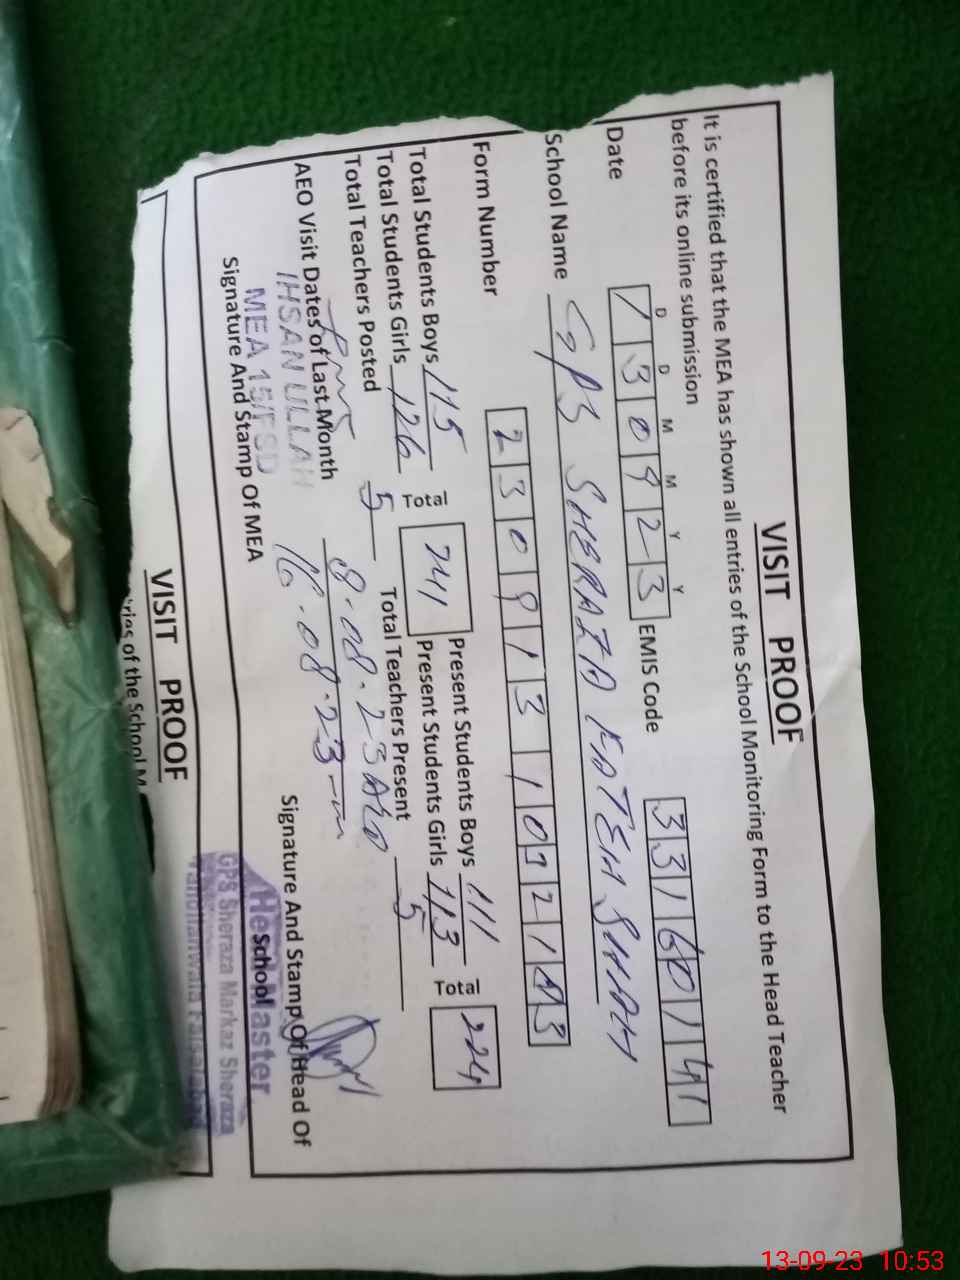 VISIT PROOF
It is certified that the MEA has shown all entries of the School Monitoring Form to the Head Teacher
before its online submission
D D M M Y Y
Date 130923 EMIS Code 33160141
School Name GPS SHERAZA KOTEH SHAH
Form Number
Total Students Boys 115 Total 241 Present Students Boys 111 Total 224
Total Students Girls 126 Present Students Girls 113
Total Teachers Posted 5 Total Teachers Present 5
AEO Visit Dates of Last Month 8.08.23 AEO
16.08.23
IHSAN ULLAH
MEA 15/FSD
Signature And Stamp Of MEA
Signature And Stamp Of Head Of
School
Head Master
GPS Sheraza Markaz Sheraza
VISIT PROOF
tries of the School M
13-09-23 10:53